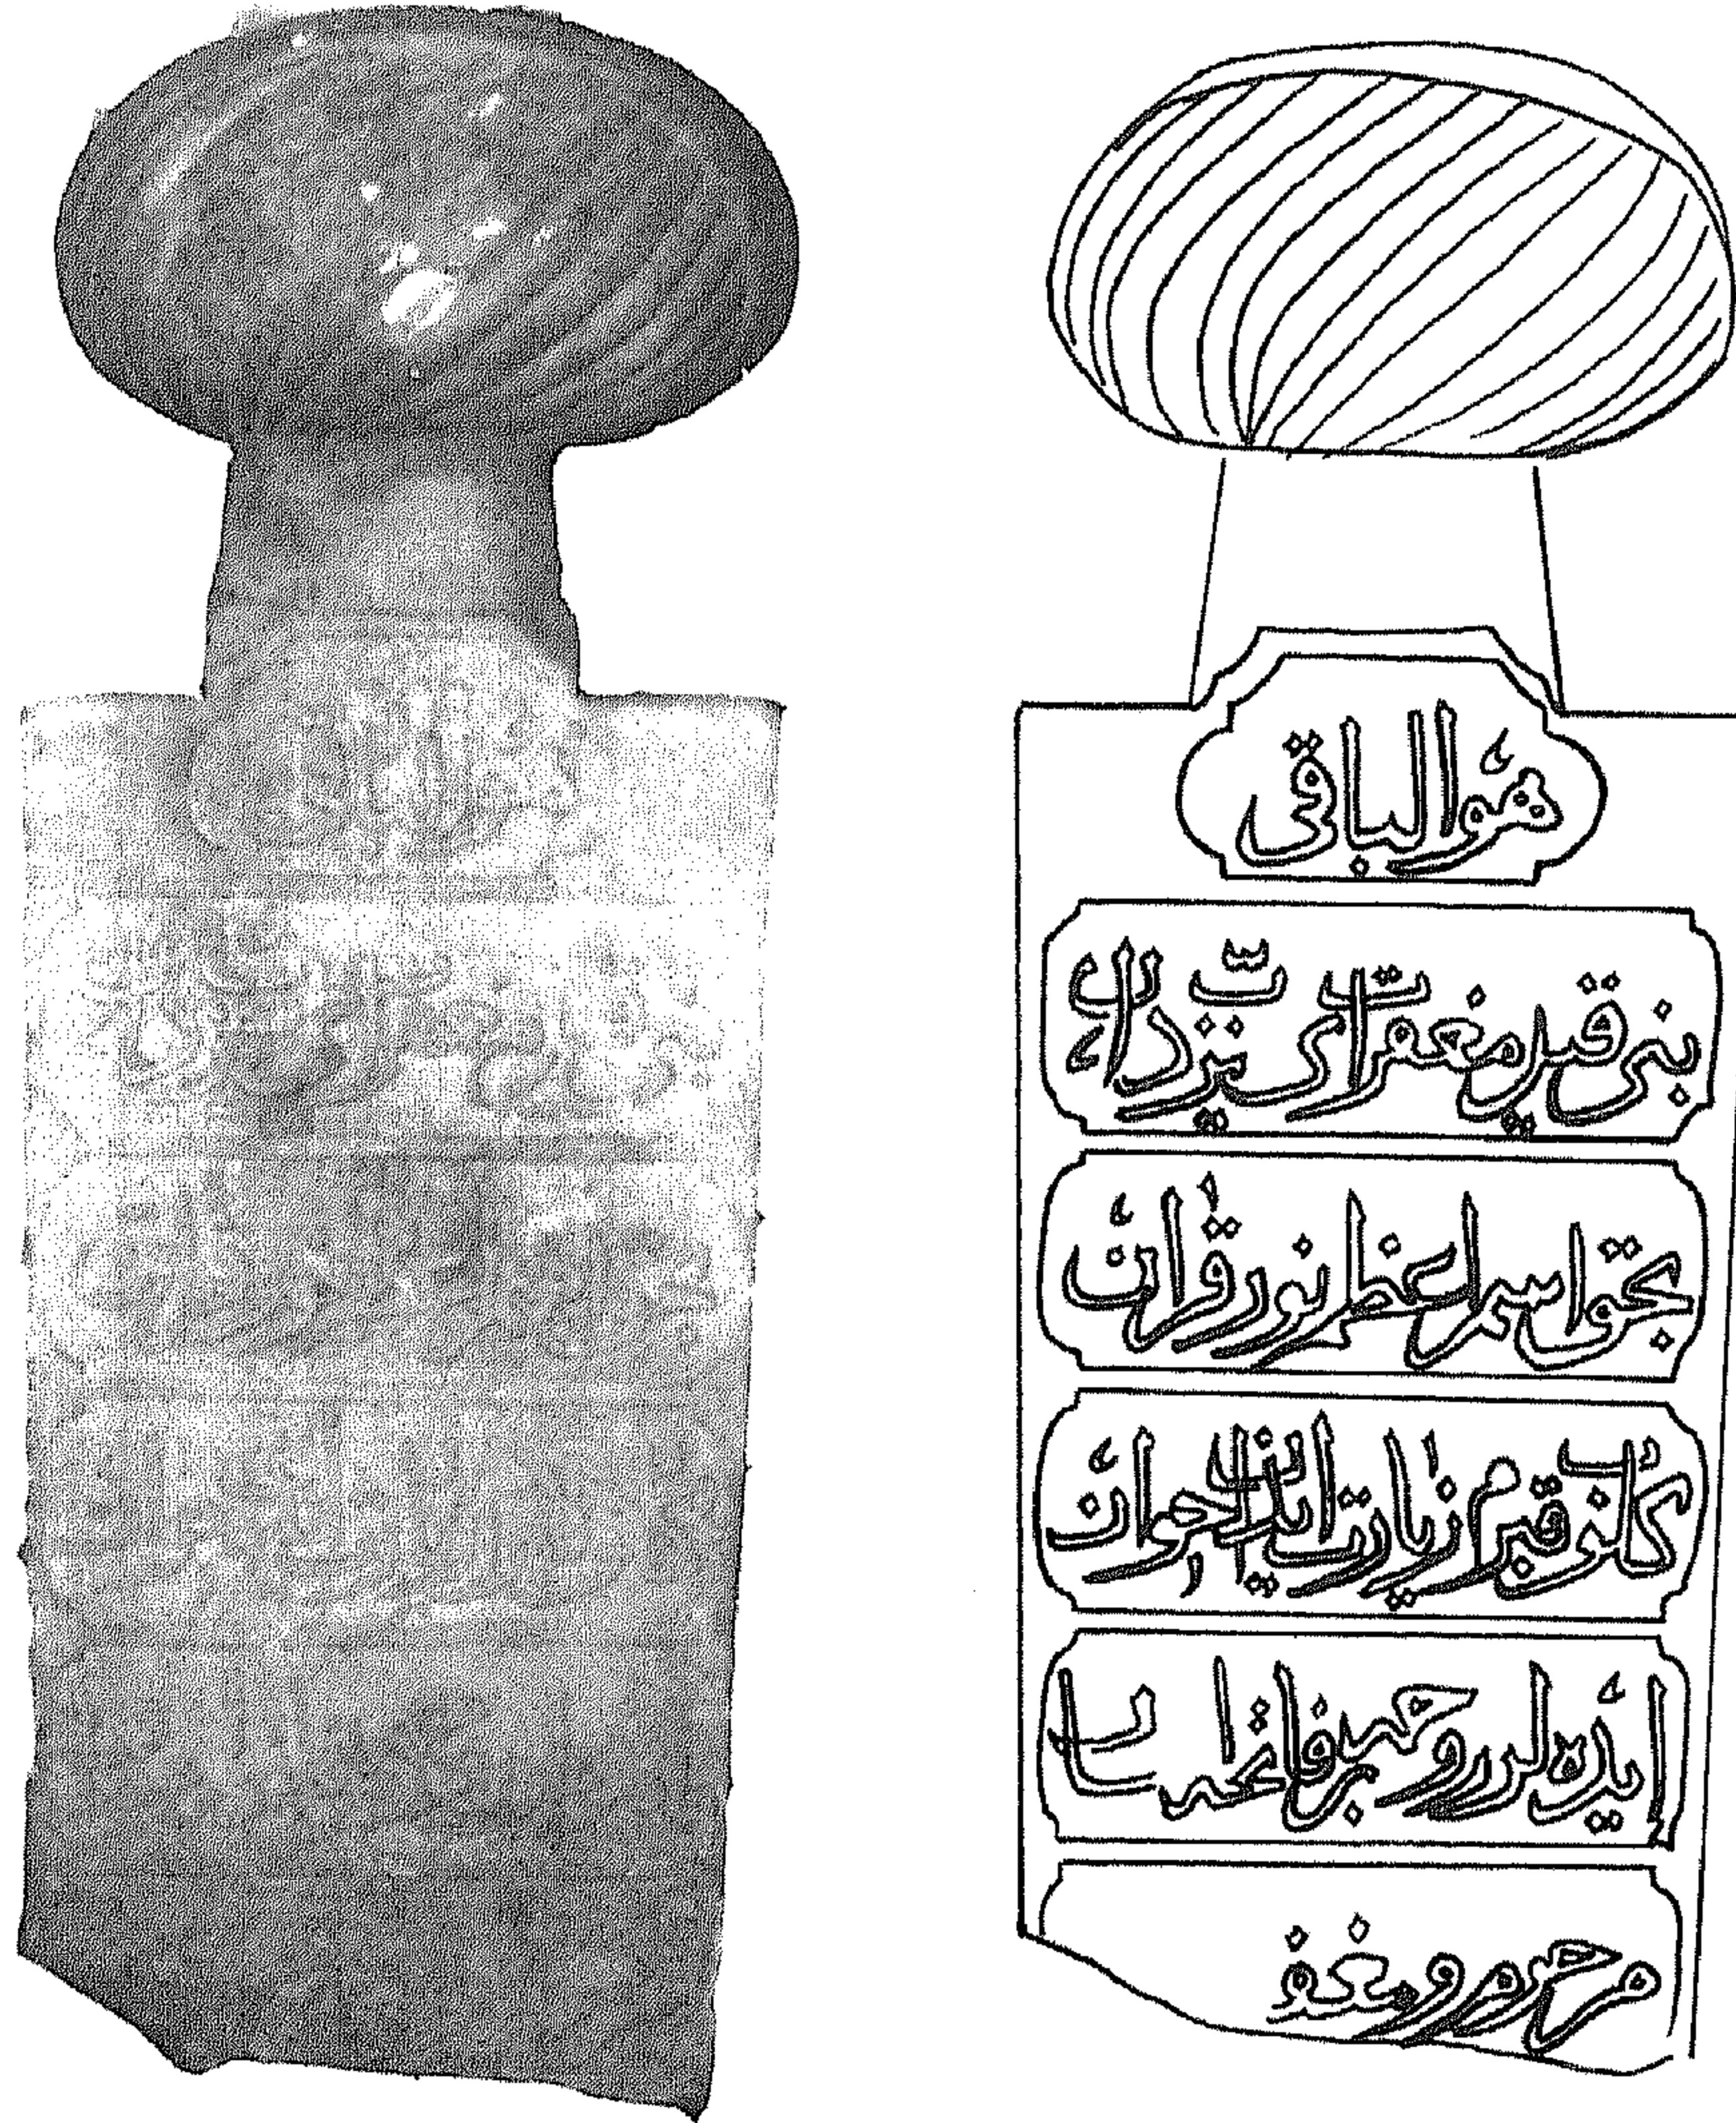 هو الباقى
بنى قيل مغفرت اى رب يزدان
بحق اسم اعظم نور قران
كلوب قبرم زيارت ايدن اخوان
ايده لر روحمه بر فاتحه
مرحوم و مغفو